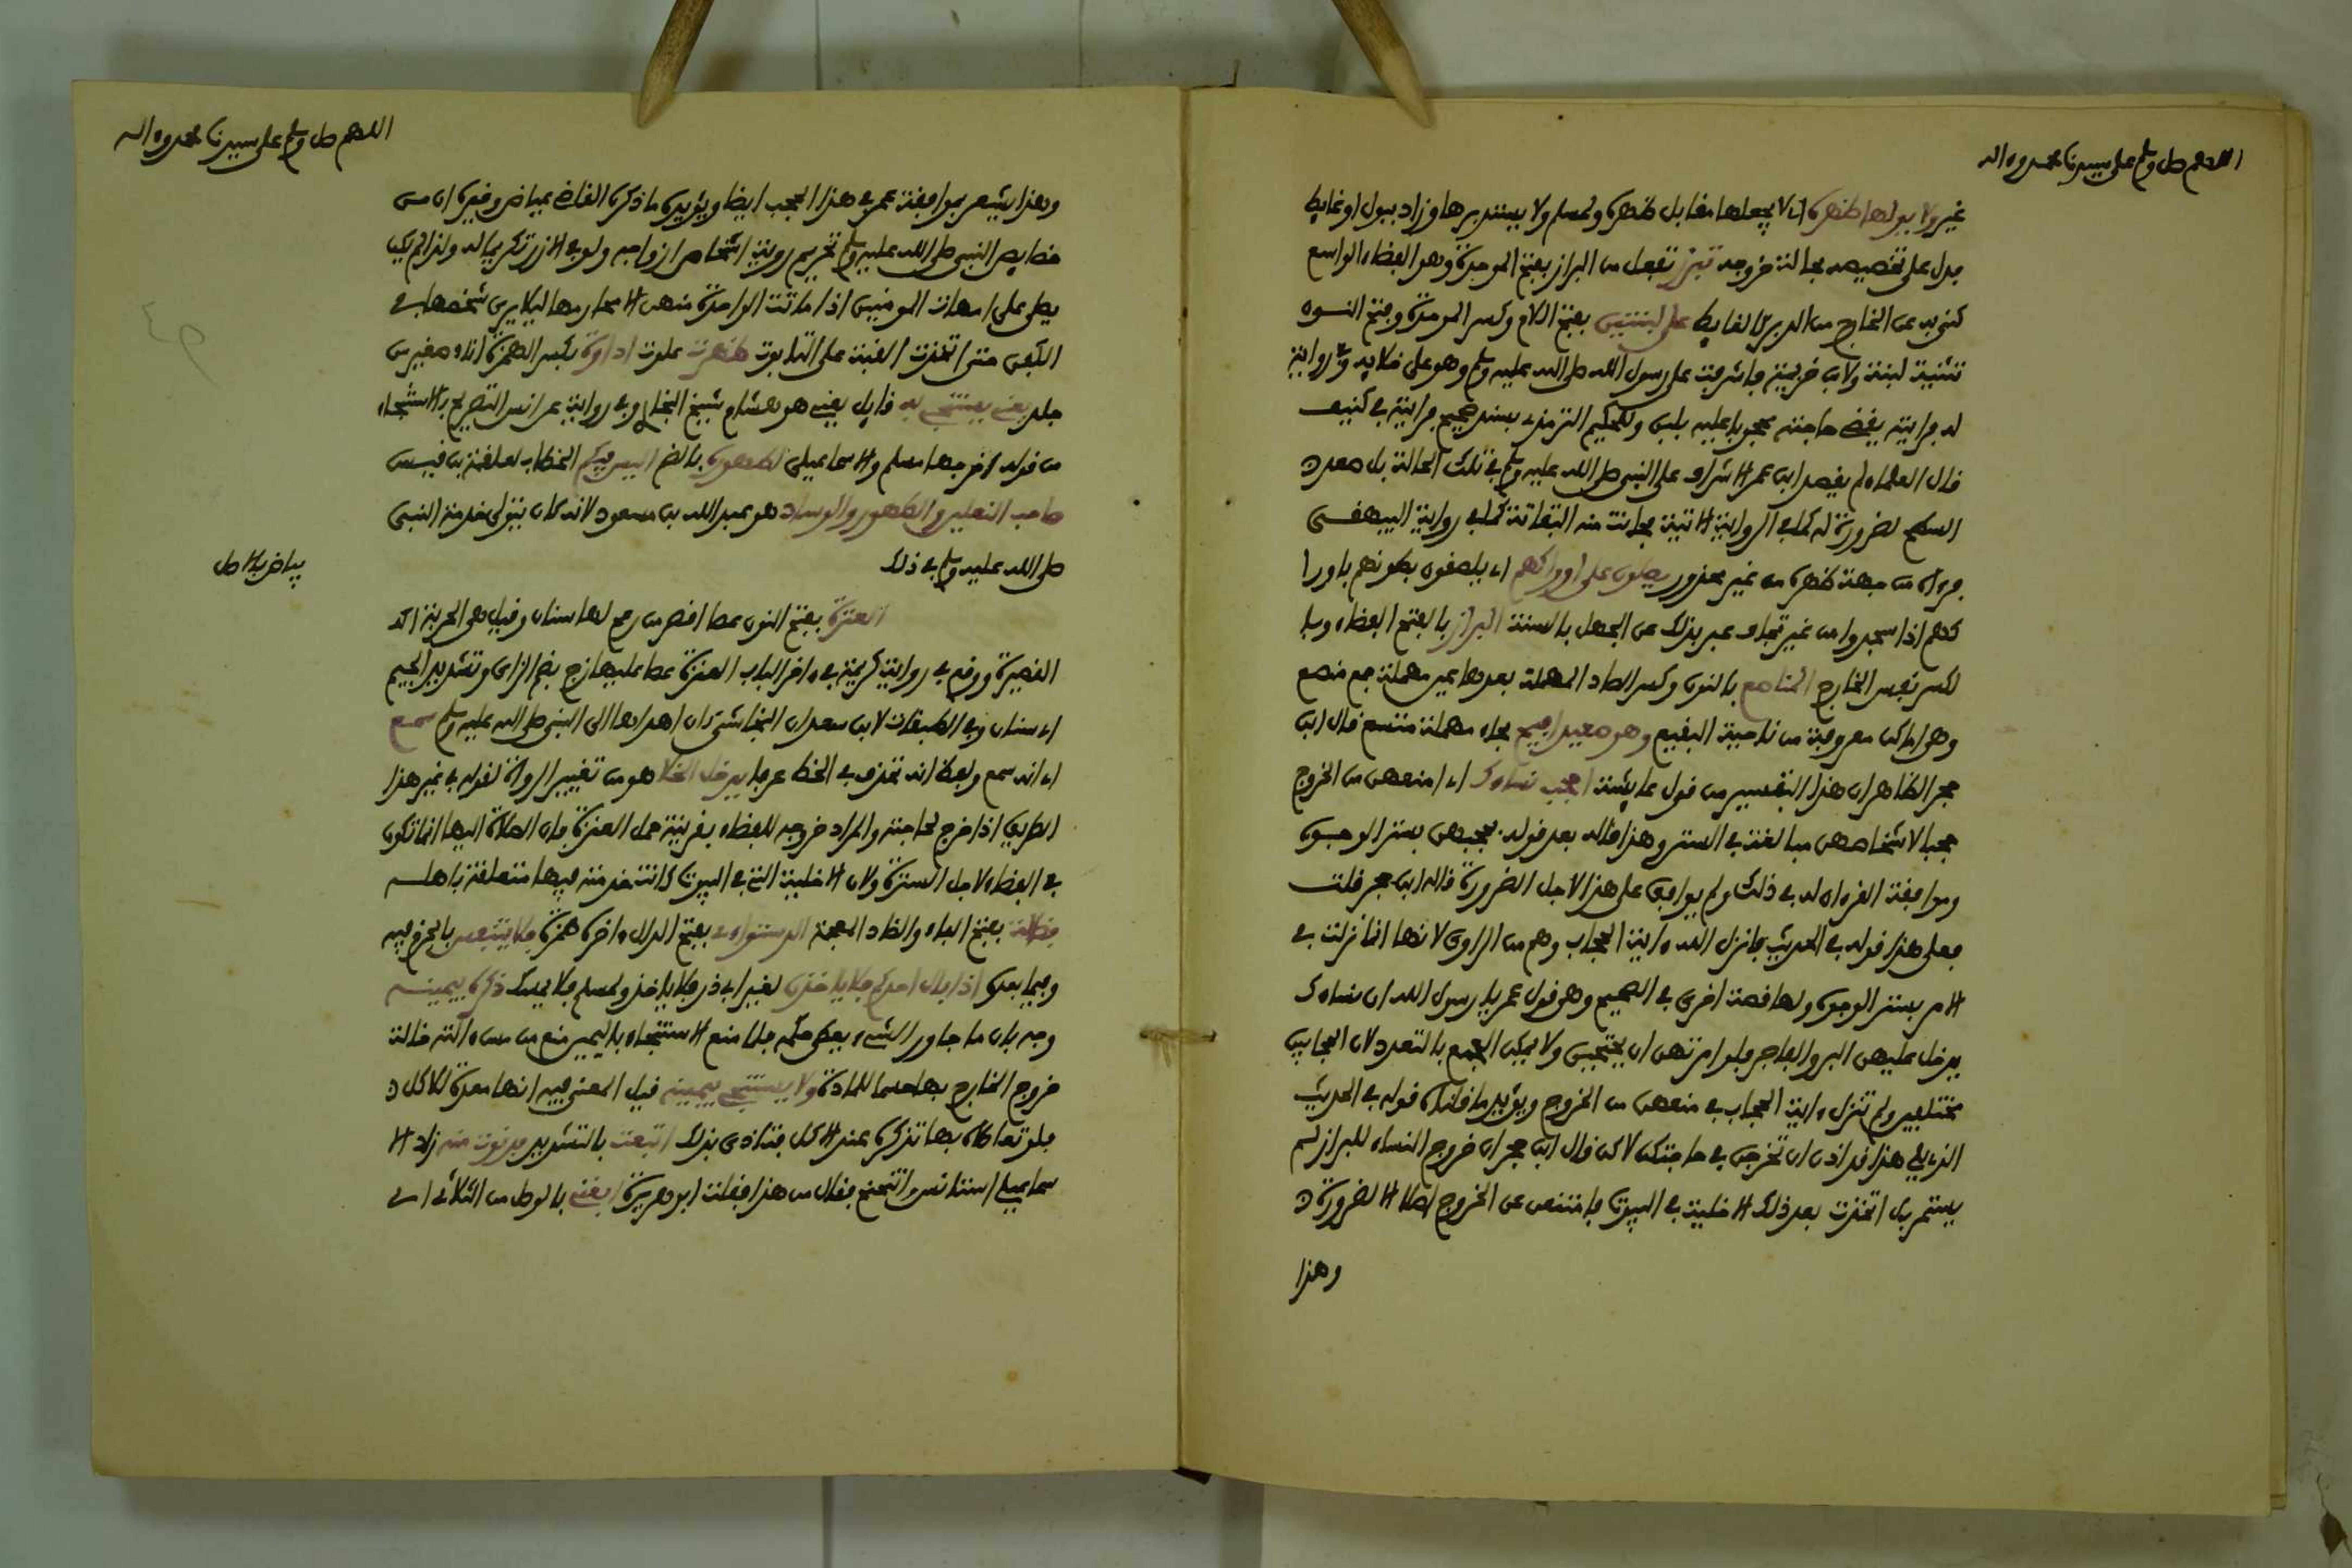 اللهم صل وسلم على سيدنا محمد وءاله
غير ولا يولها ظهره اي لا يجعلها مقابل ظهره ولمسلم ولا يستدبرها وزاد ببول او غايط
يدل على تخصيصه بحالة خروجه تبرز تفعل من البراز بفتح الموحدة وهو الفضاء الواسع
كني به عن الخارج من الدبر كالغايط على لبنتين بفتح اللام وكسر الموحدة وفتح النون
تثنية لبنة ولابن خزيمة فاشرفت على رسول الله صلى الله عليه وسلم وهو على خلايه وفي رواية
له فرايته يقضي حاجته محجوبا عليه بلبن وللحكيم الترمذي بسند صحيح فرايته في كنيف
قال العلماء لم يقصد ابن عمر الاشراف على النبي صلى الله عليه وسلم في تلك الحالة بل صعد
السطح لضرورة له كما في الرواية الاتية فحانت منه التفاتة كما في رواية البيهقي
فرءاه من جهة ظهره من غير محذور يصلون على اوراكهم اي يلصقون بطونهم باورا
كهم اذا سجدوا من غير تجاف عبر بذلك عن الجهل بالسنة البراز بالفتح الفضاء وبا
لكسر نفس الخارج المناصع بالنون وكسر الصاد المهملة بعدها عين مهملة جمع منصع
وهو اماكن معروفة من ناحية البقيع وهو صعيد افيح بحاء مهملة متسع قال ابن
حجر الظاهر ان هذا التفسير من قول عايشة احجب نساءك اي امنعهن من الخروج
حجبا لاشخاصهن مبالغة في الستر وهذا قاله بعد قوله يحجبهن بستر الوجوه
وموافقة القرءان له في ذلك ولم يوافق على هذا لاجل الضرورة قاله ابن حجر قلت
فعلى هذا قوله في الحديث فانزل الله ءاية الحجاب وهم من الراوي لانها انما نزلت في
الامر بستر الوجوه ولها قصة اخرى في الصحيح وهو قول عمر يا رسول الله ان نساءك
يدخل عليهن البر والفاجر فلو امرتهن ان يحتجبن ولا يمكن الجمع بالتعدد لان الحجابين
مختلفين ولم تنزل ءاية الحجاب في منعهن من الخروج ويؤيد ما قلناه قوله في الحديث
الذي يلي هذا قد اذن ان تخرجن في حاجتكن لاكن قال ابن حجر ان خروج النساء للبراز لم
يستمر بل اتخذت بعد ذلك الاخلية في البيوت فامتنعن عن الخروج اصلا الا لضرورة
وهذا
اللهم صل وسلم على سيدنا محمد وءاله
وهذا يشعر بموافقة عمر في هذا الحجب ايضا ويؤيده ما ذكره القاضي عياض وغيره ان من
خصايص النبي صلى الله عليه وسلم تحريم روية اشخاص ازواجه ولو في الازر تكريما له ولذا لم يكن
يصلي على امهات المومنين اذا ماتت الواحدة منهن الا محارمها ليلا يرى شخصها في
الكفن حتى اتخذت القبة على التابوت ظهرت علوت اداوة بكسر الهمزة اناء صغير من
جلد يعني يستنجي به قايل يعني هو هشام شيخ البخاري وفي رواية عن انس التصريح بالاستنجاء
من قوله اخرجها مسلم والاسماعيلي لطهوره بالضم اليس فيكم الخطاب لعلقمة بن قيس
صاحب النعلين والطهور والوساد هو عبد الله بن مسعود لانه كان يتولى خدمة النبي
صلى الله عليه وسلم في ذلك
بياض بالاصل
العنزة بفتح النون عصا اقصر من رمح لها سنان وقيل هي الحربة
القصيرة ووقع في رواية كريمة في ءاخر الباب العنزة عصا عليها زج بضم الزاي وتشديد الجيم
اي سنان وفي الطبقات لابن سعد ان النجاشي كان اهداها الى النبي صلى الله عليه وسلم سمع
اي انه سمع ولفظ انه تحذف في الخط عرفا يدخل الخلا هو من تغيير الرواة لقوله في غير هذا
الطريق اذا خرج لحاجته والمراد خروجه للفضاء بقرينة حمل العنزة فان الصلاة اليها انما تكون
في الفضاء لاجل السترة ولان الاخلية التي في البيوت كانت خدمته فيها متعلقة باهله
فضالة بفتح الفاء والضاد المعجمة الدستواءي بفتح الدال وءاخره همزة فلا يتنفس بالجزم فيه
وفيما بعده اذا بال احدكم فلا ياخذن لغير ابي ذر فلا ياخذ ولمسلم فلا يمسك ذكره بيمينه
وجه بان ما جاور الشيء يعطى حكمه فلما منع الاستنجاء باليمين منع من مس ءالته حالة
خروج الخارج بها حسما للمادة ولا يستنجي بيمينه قيل المعنى فيه انها معدة للاكل
فلو تعاطاه بها تذكره عند الاكل فتاذى بذلك اتبعت بالتشديد فدنوت منه زاد الا
سماعيلي استانس واتنحنح فقال من هذا فقلت ابو هريرة ابغني بالوصل من الثلاثي اي